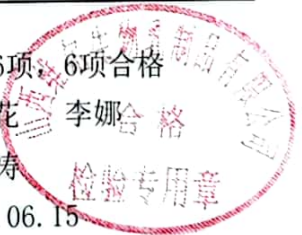 6项，6项合格
花 李娜
寿
06.15
合格
检验专用章